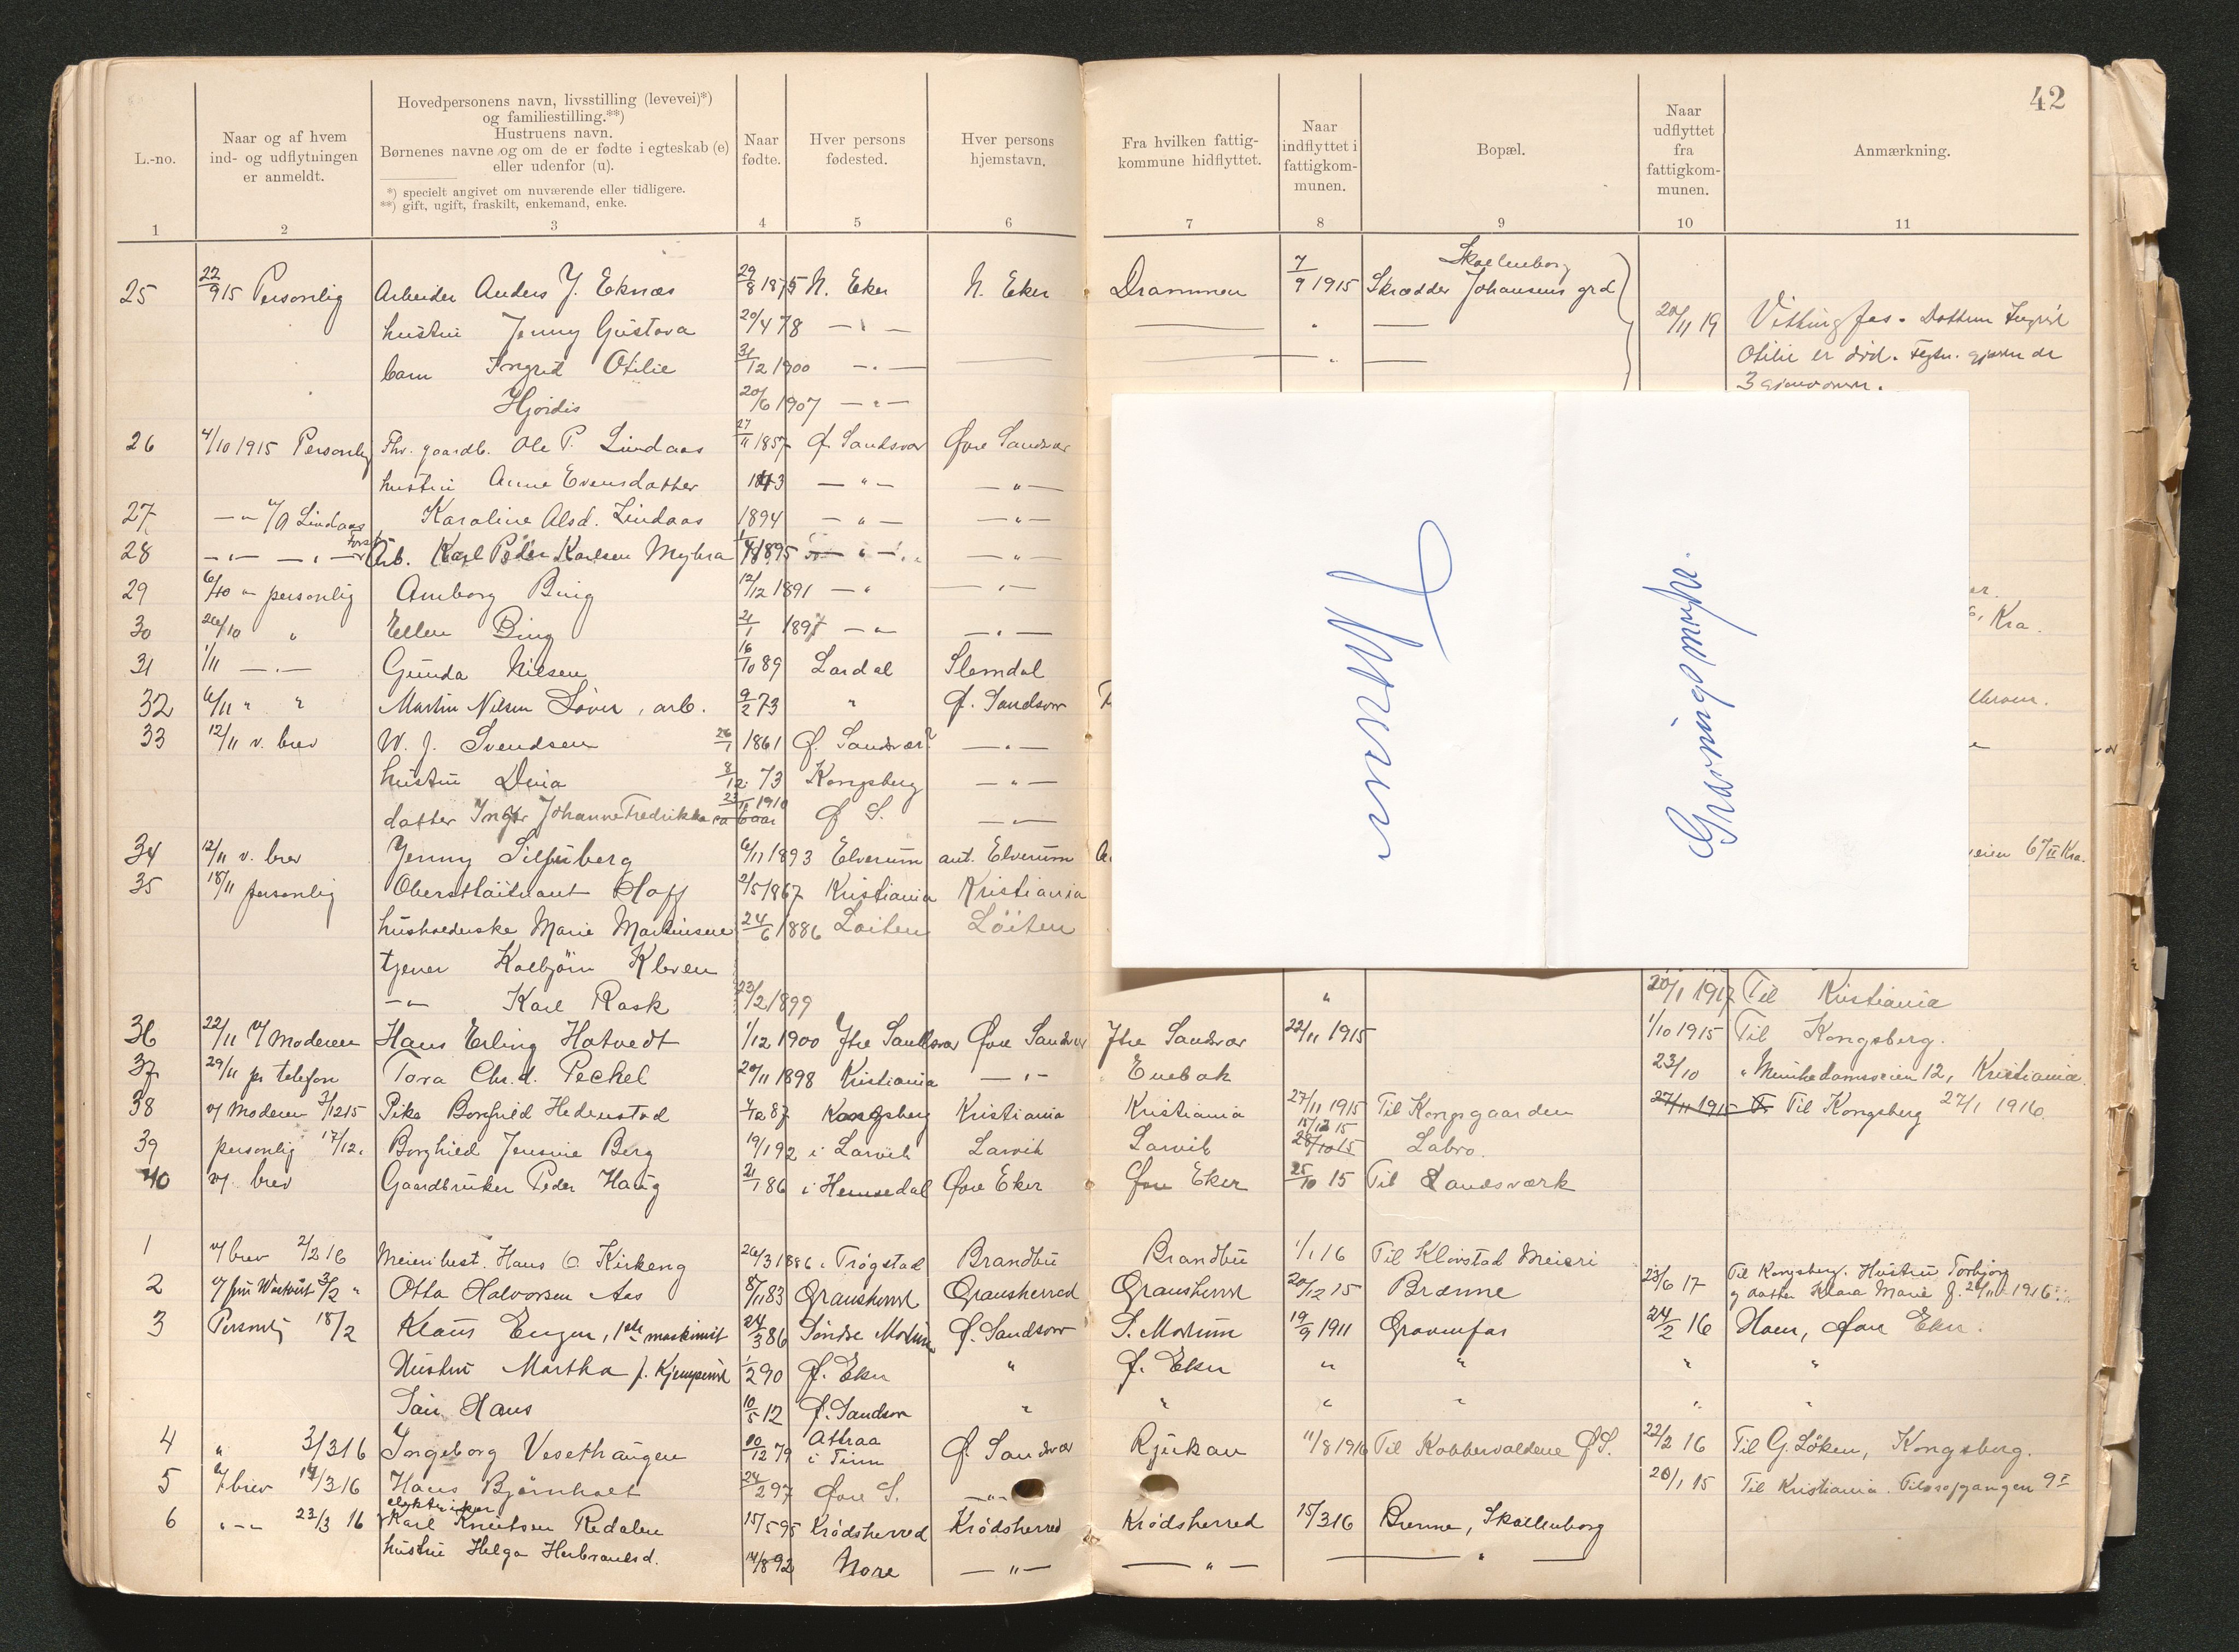 42
L.-no.
Naar og af hvem ind- og udflytningen er anmeldt.
Hovedpersonens navn, livsstilling (levevei)*) og familiestilling.**)
Hustruens navn.
Børnenes navne og om de er fødte i egteskab (e) eller udenfor (u).
*) specielt angivet om nuværende eller tidligere.
**) gift, ugift, fraskilt, enkemand, enke.
Naar fødte.
Hver persons fødested.
Hver persons hjemstavn.
Fra hvilken fattigkommune hidflyttet.
Naar indflyttet i fattigkommunen.
Bopæl.
Naar udflyttet fra fattigkommunen.
Anmærkning.
1 2 3 4 5 6 7 8 9 10 11
25 22/9 15 Personlig Arbeider Anders J. Eknæs 29/8 1875 N. Eker N. Eker Drammen 7/9 1915 Skollenborg Skrædder Johansens grd
hustru Jenny Gustava 20/4 78 — " — 20/11 19 Vittingfos. Datteren Ingrid
barn Ingrid Otilie 31/12 1900 — " — Otilie er död.
Hjördis 20/6 1907 — " —
26 4/10 1915 Personlig Fhv. gaardb. Ole P. Lindaas 27/11 1857 Ø Sandsvær Øvre Sandsvær
hustru Anne Evensdatter 1843 — " — — " —
27 — " — v/ O Lindaas Karoline Alsd. Lindaas 1894 — " — — " —
28 — " — — " — Arb. Karl Peder Karlsen Myhra 1895 — " — — " —
29 6/10 " personlig Amborg Bing 12/12 1891 — " — " —
30 26/10 " Ellen Bing 21/1 189 — " — " — Kra.
31 1/11 — " — Gunda Nilsen 16/10 89 Lardal Slemdal
32 6/11 " " Martin Nilsen Löver, arb. 9/2 73 " Ø. Sandsvær
33 12/11 v. brev W. J. Svendsen 26/1 1861 Ø. Sandsvær? — " —
hustru Dina 8/12 73 Kongsberg — " —
datter Inger Johanne Fredrikke 1910 Ø S. — " —
34 12/11 v. brev Jenny Silfuberg 6/11 1893 Elverum ant. Elverum 67 II Kra.
35 18/11 personlig Oberstlöitnant Hoff 2/5 1867 Kristiania Kristiania
husholderske Marie Martinsen 24/6 1886 Löiten Löiten
tjener Kolbjörn Kleven
— " — Karl Rask 23/2 1899 " 20/1 1917 Til Kristiania
Hansen
Gravningsmyhr.
36 22/11 v/ Moderen Hans Erling Hotvedt 1/12 1900 Ytre Sandsvær Øvre Sandsvær Ytre Sandsvær 22/11 1915 1/10 1915 Til Kongsberg.
37 29/11 pr telefon Tora Chr.d. Peckel 20/11 1898 Kristiania — " — Enebak 23/10 " Munkedamsveien 12, Kristiania
38 v/ Moderen 3/12 15 Pike Borghild Hedenstad 7/12 87 Kongsberg Kristiania Kristiania 27/11 1915 Til Kongsgaarden 27/11 1915 Til Kongsberg 27/1 1916
39 personlig 17/12. Borghild Jensine Berg 19/1 92 i Larvik Larvik Larvik 15/12 15 28/10 15 Labro.
40 v/ brev Gaardbruker Peder Haug 21/1 86 i Hemsedal Øvre Eker Øvre Eker 25/10 15 Til Landsværk
1 v/ brev 2/2 16 Meieribest. Hans O. Kirkeng 26/3 1886 i Trøgstad Brandbu Brandbu 1/1 16 Til Klovstad Meieri
2 3/2 " Otto Halvorsen Aas 8/11 83 Gransherred Gransherred Gransherred 20/12 15 Brænne 23/6 17 Til Kongsberg. Hustru Torbjørg
og datter Klara Marie f. 24/11 1916
3 Personlig 18/2 Klaus Engen, 1ste maskinist 24/3 86 Söndre Modum Ø. Sandsvær S. Modum 19/9 1911 Gravenfos 24/2 16 Hoen, Øvre Eker.
Hustru Martha f. Kjemperud 1/2 90 Ø. Eker " Ø. Eker " " " "
Sön Hans 10/5 12 Ø. Sandsvær " " " " " "
4 " 3/3 16 Ingeborg Vesethaugen 10/12 79 Attraa i Tinn Ø. Sandsvær Rjukan 11/8 1916 Til Kobbervoldene Ø S. 22/2 16 Til G. Löken, Kongsberg.
5 v/ brev 14/3 16 Hans Björnholt 24/2 97 Øvre S. — " 20/1 15 Til Kristiania. Filosofgangen 9 I
6 " — " 23/3 16 elektriker Karl Knutsen Redalen 15/5 95 Krödsherred Krödsherred Krödsherred 15/3 16 Brenne, Skollenborg
hustru Helga Herbrandsd. 14/8 92 Nore — " — — " — — " —